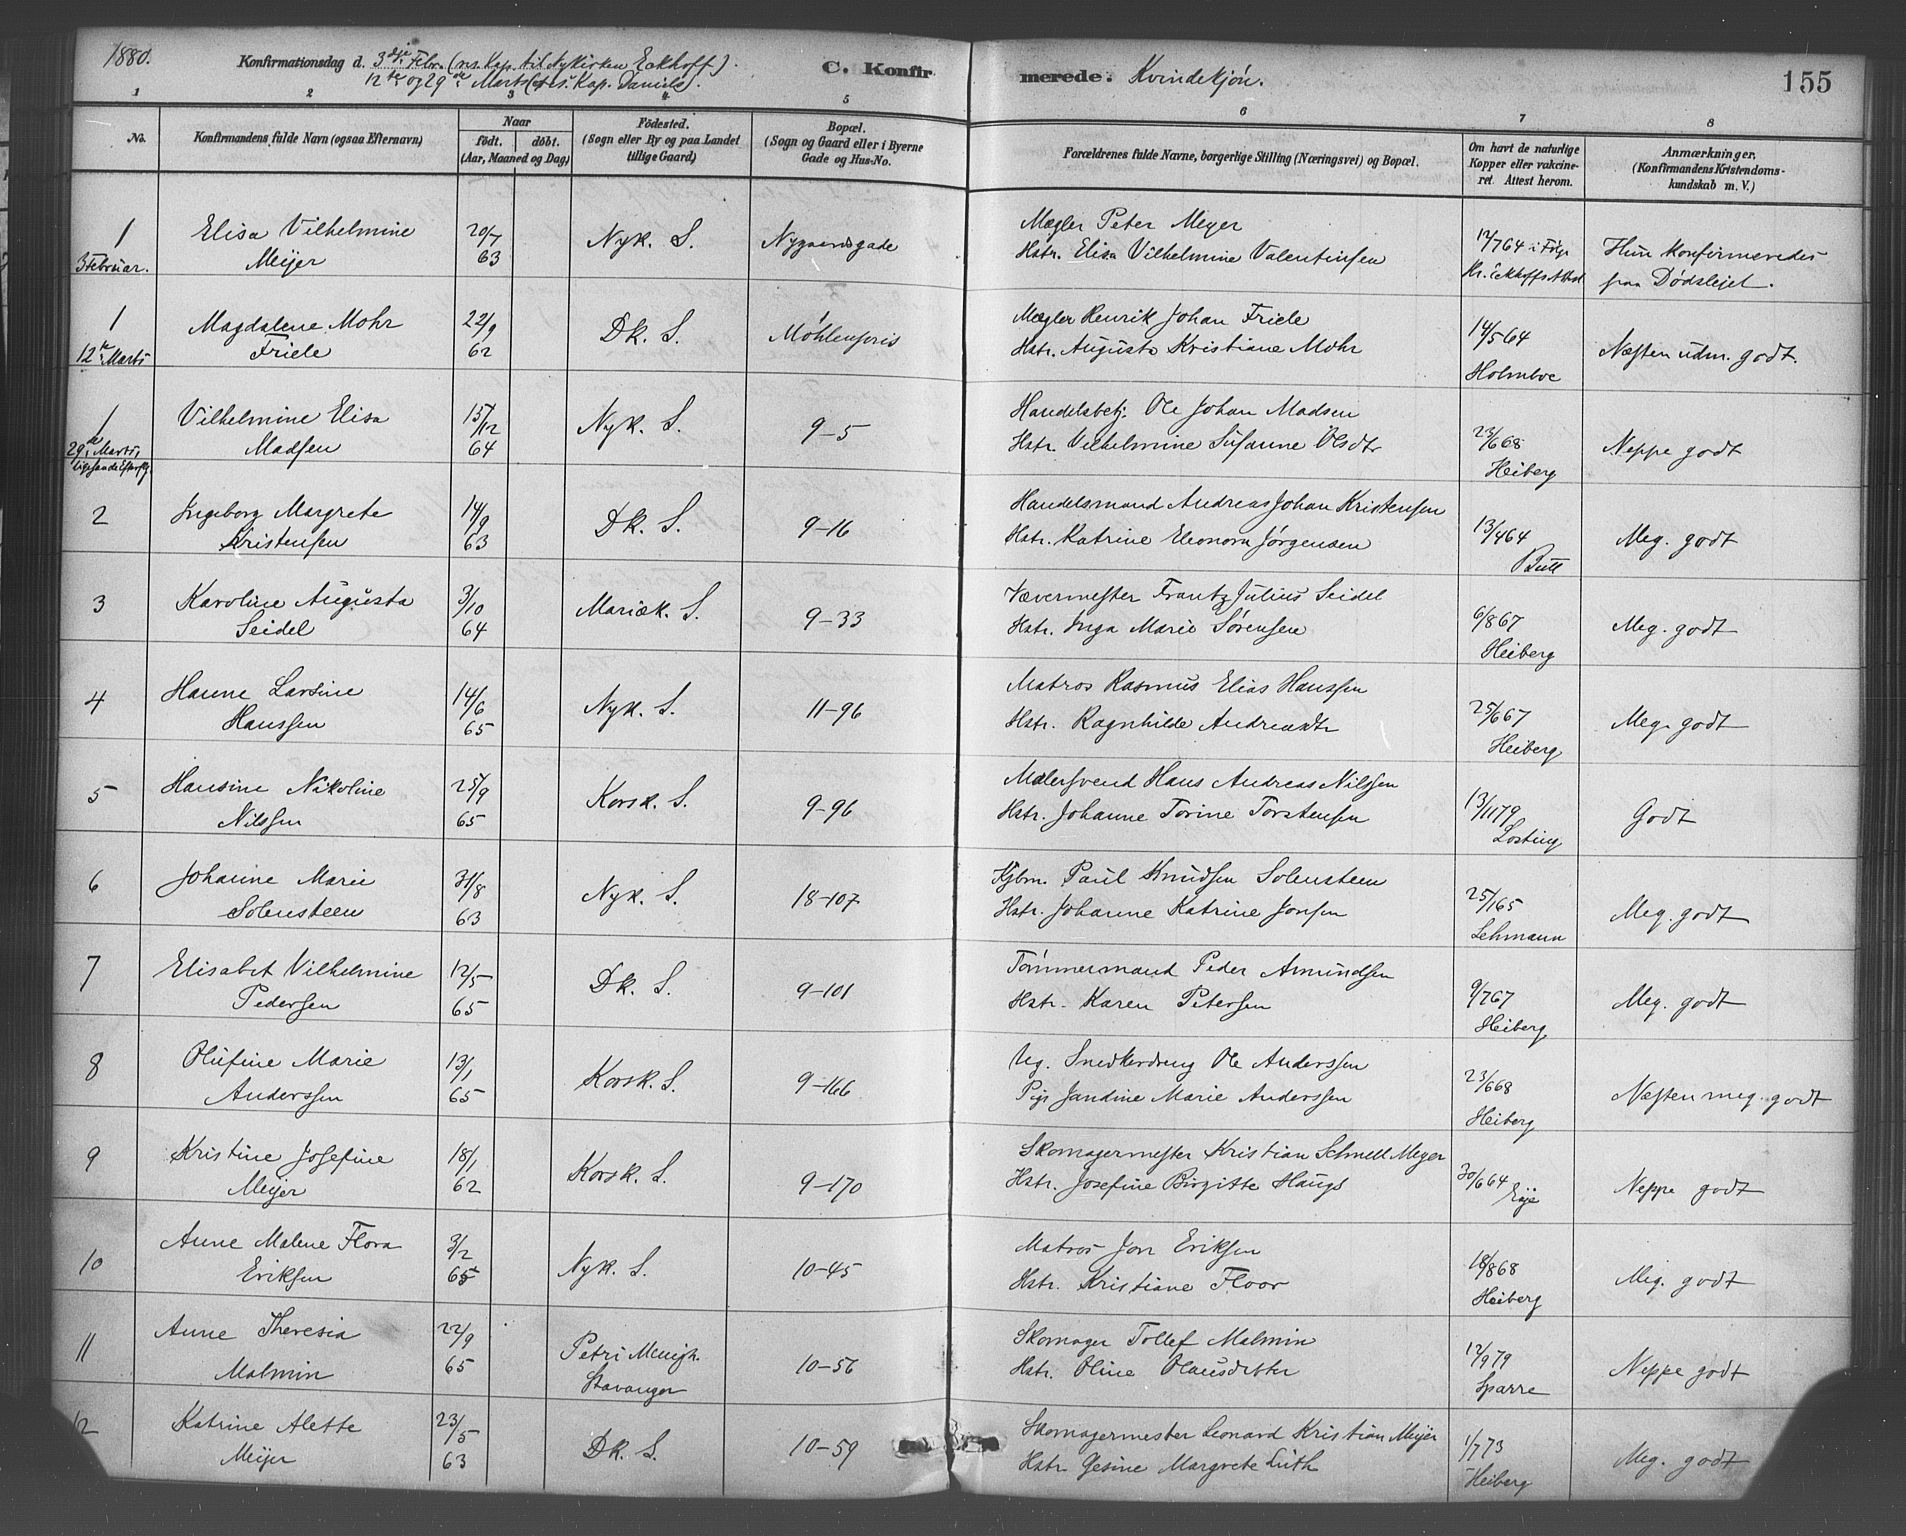 1880.
Konfirmationsdag d. 3dje Febr. (res. Kap. til Nykirken Eckhoff).
12te og 29de Marts (res. Kap. Daniels).
C. Konfirmerede. Kvindekjøn.
155
1 2 3 4 5 6 7 8
No.
Konfirmandens fulde Navn (ogsaa Efternavn)
Naar
født. døbt.
(Aar, Maaned og Dag)
Fødested.
(Sogn eller By og paa Landet
tillige Gaard)
Bopæl.
(Sogn og Gaard eller i Byerne
Gade og Hus-No.
Forældrenes fulde Navne, borgerlige Stilling (Næringsvei) og Bopæl.
Om havt de naturlige
Kopper eller vakcine-
ret. Attest herom.
Anmærkninger.
(Konfirmandens Kristendoms-
kundskab m. V.)
1
3 Februar.
Elisa Vilhelmine
Meijer
20/7
63
Nyk. S.
Nygaardsgade
Mægler Peter Meyer
Hstr. Elisa Vilhelmine Valentinsen
12/7 64 i Følge
Kr. Eckhoffs Attest
Hun konfirmeredes
paa Dødslejet.
1
12te Marts
Magdalene Mohr
Friele
22/9
62
Dk. S.
Møhlenpris
Mægler Henrik Johan Friele
Hstr. Augusta Kristiane Mohr
14/5 64
Holmboe
Næsten udm. godt.
1
29de Marts,
Vilhelmine Elisa
Madsen
15/12
64
Nyk. S.
9-5
Handelsbetj. Ole Johan Madsen
Hstr. Vilhelmine Susanne Olsdtr
23/6 68
Heiberg
Neppe godt
2
Ingeborg Margrete
Kristensen
14/9
63
Dk. S.
9-16
Handelsmand Andreas Johan Kristensen
Hstr. Katrine Eleonora Jørgensen
13/4 64
Bull
Meg. godt
3
Karoline Augusta
Seidel
3/10
64
Mariæk. S.
9-33
Vævermester Frantz Julius Seidel
Hstr. Inga Marie Sørensen
6/8 67
Heiberg
Meg. godt
4
Hanne Larsine
Hanssen
14/6
65
Nyk. S.
11-96
Matros Rasmus Elias Hanssen
Hstr. Ragnhilde Andreasdtr
25/6 67
Heiberg
Meg. godt
5
Hansine Nikoline
Nilssen
25/9
65
Korsk. S.
9-96
Malersvend Hans Andreas Nilssen
Hstr. Johanne Torine Torstensen
13/11 79
Losting
Godt
6
Johanne Marie
Solensteen
31/8
63
Nyk. S.
18-107
Kjbm. Paul Knudsen Solensteen
Hstr. Johanne Katrine Jonsen
25/1 65
Lehmann
Meg. godt
7
Elisabet Vilhelmine
Pedersen
12/5
65
Dk. S.
9-101
Tømmermand Peder Amundsen
Hstr. Karen Petersen
9/7 67
Heiberg
Meg. godt
8
Olufine Marie
Anderssen
13/1
65
Korsk. S.
9-166
Ug. Snedkerdreng Ole Anderssen
Pige Jandine Marie Anderssen
23/6 68
Heiberg
Næsten meg. godt
9
Kristine Josefine
Meijer
18/1
62
Korsk. S.
9-170
Skomagermester Kristian Schnell Meyer
Hstr. Josefine Birgitte Haugs
30/6 64
Neppe godt
10
Anne Malene Flora
Eriksen
3/2
65
Nyk. S.
10-45
Matros Jon Eriksen
Hstr. Kristiane Floor
18/8 68
Heiberg
Meg. godt
11
Anne Theresia
Malmin
22/9
65
Petri Menigh.
Stavanger
10-56
Skomager Tollef Malmin
Hstr. Oline Olausdatter
12/9 79
Sparre
Neppe godt
12
Katrine Alette
Meijer
23/5
63
Dk. S.
10-59
Skomagermester Leonard Kristian Meijer
Hstr. Gesine Margrete Lüth
1/7 73
Heiberg
Meg. godt